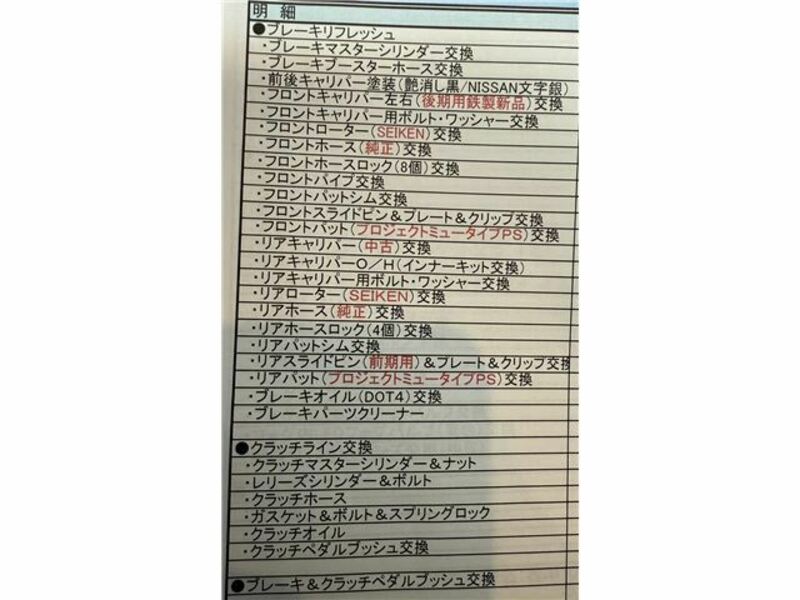 明 細
●ブレーキリフレッシュ
・ブレーキマスターシリンダー交換
・ブレーキブースターホース交換
・前後キャリパー塗装(艶消し黒/NISSAN文字銀)
・フロントキャリパー左右(後期用鉄製新品)交換
・フロントキャリパー用ボルト・ワッシャー交換
・フロントローター(SEIKEN)交換
・フロントホース(純正)交換
・フロントホースロック(8個)交換
・フロントパイプ交換
・フロントパットシム交換
・フロントスライドピン&プレート&クリップ交換
・フロントパット(プロジェクトミュータイプPS)交換
・リアキャリパー(中古)交換
・リアキャリパーO/H(インナーキット交換)
・リアキャリパー用ボルト・ワッシャー交換
・リアローター(SEIKEN)交換
・リアホース(純正)交換
・リアホースロック(4個)交換
・リアパットシム交換
・リアスライドピン(前期用)&プレート&クリップ交換
・リアパット(プロジェクトミュータイプPS)交換
・ブレーキオイル(DOT4)交換
・ブレーキパーツクリーナー
●クラッチライン交換
・クラッチマスターシリンダー&ナット
・レリーズシリンダー&ボルト
・クラッチホース
・ガスケット&ボルト&スプリングロック
・クラッチオイル
・クラッチペダルブッシュ交換
●ブレーキ&クラッチペダルブッシュ交換